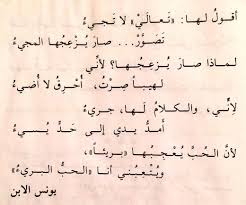 أقولُ لها: «تَعالَيْ» لا تَجيءُ
تَصَوَّرْ... صارَ يُزعِجُها المجيءُ
لماذا صارَ يُزعِجُها؟ لأنّي
لهيباً صِرْتُ، أُحْرِقُ لا أُضيءُ
لِأنِّي، والكلامُ لَها، جريءُ
أمدُّ يدي إلى حَدٍّ يُسيءُ
لأنَّ الحُبَّ يُعْجِبُها «بريئاً»،
ويُتْعِبُني أنا «الحبُّ البريءُ»
يونس الابن